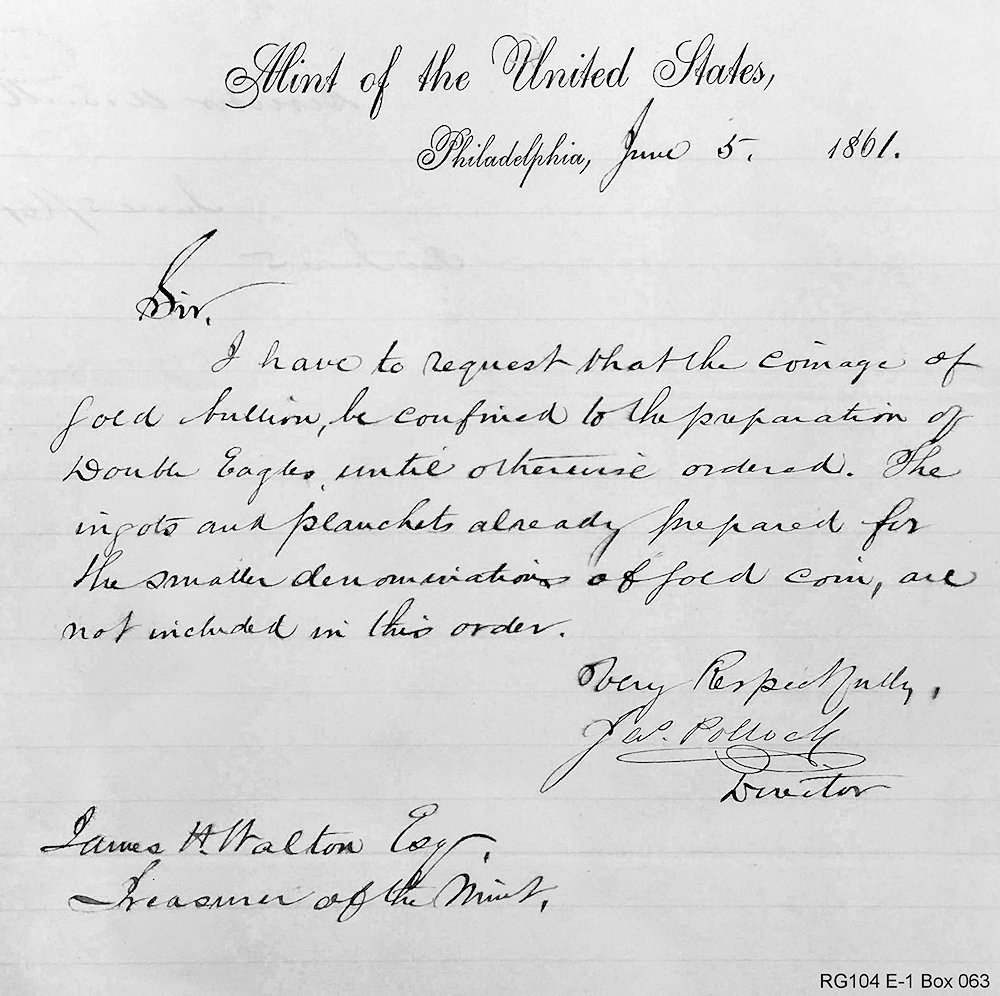 Mint of the United States,
Philadelphia, June 5. 1861.
Sir.
I have to request that the coinage of
gold bullion, be confined to the preparation of
Double Eagles, until otherwise ordered. The
ingots and planchets already prepared for
the smaller denominations of gold coin, are
not included in this order.
Very Respectfully,
Jas. Pollock
Director
James H. Walton Esq.
Treasurer of the Mint.
RG104 E-1 Box 063